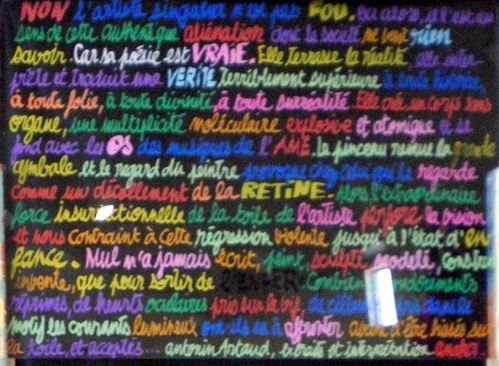 NON l'artiste singulier n'est pas FOU. Ou alors, il l'est au
sens de cette authentique aliénation dont la société ne veut rien
savoir. Car sa poésie est VRAIE. Elle terrasse la réalité, elle inter-
prète et traduit une VÉRITÉ terriblement supérieure à toute histoire
à toute folie, à toute divinité, à toute surréalité. Elle crée un corps sans
organe, une multiplicité moléculaire explosive et atomique et se
fond avec les OS des musiques de l'AME. Le pinceau remue la grande
cymbale et le regard du peintre provoque chez celui qui le regarde
comme un décollement de la RETINE. l'extraordinaire
force insurrectionnelle de la toile de l'artiste perfore la vision
et nous contraint à cette régression violente jusqu'à l'état d'en
fance. Mul n'a jamais écrit, peint, sculpté, modelé, construit
inventé, que pour sortir de Combien
réprimés, de heurts oculaires pris sur le vif, de dans le
motif les courants lumineux ont-ils eu à affronter avant d'être hissés sur
la toile, et acceptés... antonin Artaud, extraits et interprétation